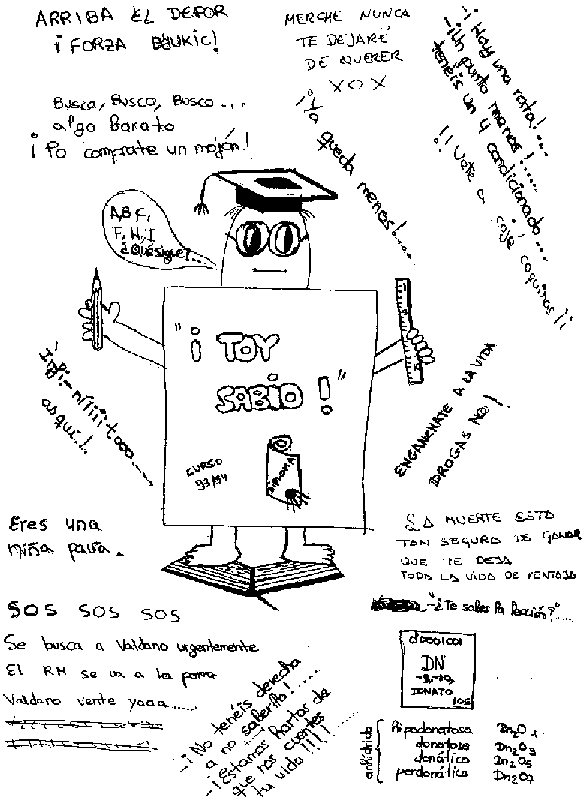 ARRIBA EL DEPOR
¡ FORZA BDUKIC!
MERCHE NUNCA
TE DEJARÉ
DE QUERER
XOX
¡¡ Hay una rata!...
¡Un punto menos!.....
tenéis un 4 condicionado...
!! Vete a cojé coquinas!!
Busco, Busco, Busco ...
algo Barato
¡ Pa comprarte un mojón!
queda menos!....
A,B,C,
F, H, I
¿Qué sigue?..
"¡ TOY
SABIO !"
CURSO
93/94
DIPLOMA
asquí!..
ENGANCHATE A LA VIDA
DROGAS NO!
Eres una
niña pava.
LA MUERTE ESTÁ
TAN SEGURA DE GANAR
QUE TE DEJA
TODA LA VIDA DE VENTAJA
-¿Te sabes la lección?"
SOS SOS SOS
Se busca a Valdano urgentemente
El RM se va a la porra
Valdano vente yaaa.....
-¡No tenéis derecho
a no saberlo!....
-¡Estamos hartos de
que nos cuentes
tu vida!!!!
DN
DONATO
anhídrido
hipodonatoso
donatoso Dn₂O₃
donático Dn₂O₅
perdonático Dn₂O₇